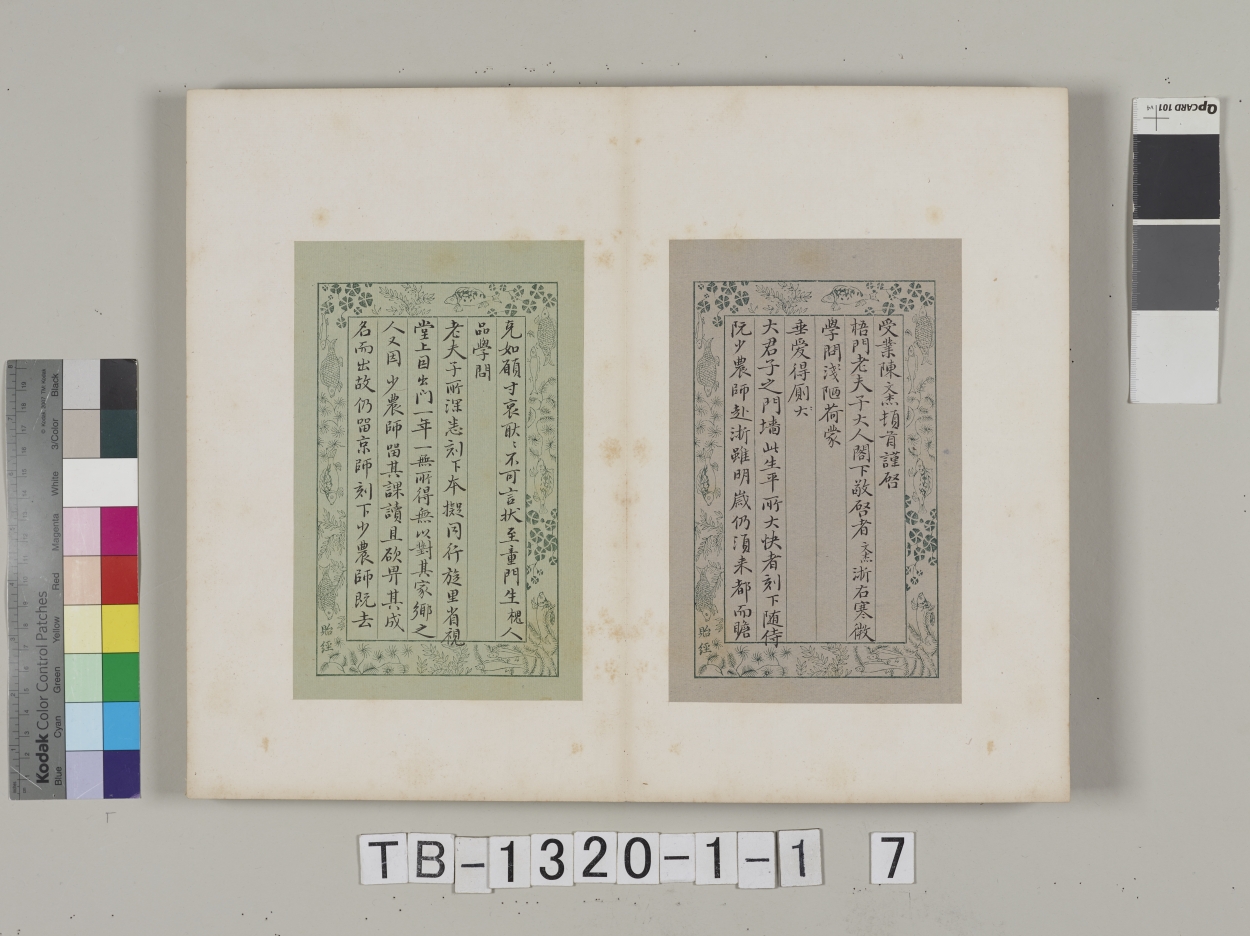 受業陳文杰頓首謹啓
梧門老夫子大人閣下敬啓者文杰浙右寒微
學問淺陋荷蒙
垂愛得廁大
大君子之門墻此生平所大快者刻下随侍
阮少農師赴浙雖明歲仍須来都而瞻
貽経
見如願寸衷耿〻不可言状至童門生槐人
品學問
老夫子所深悉刻下本擬同行旋里省親
堂上因出门一年一無所得無以對其家鄉之
人又因少農師留其課讀且欲畀其成
名而出故仍留京師刻下少農師既去
貽経
TB-1320-1-1 7
QPCARD 101 v4
Kodak Color Control Patches
Blue Cyan Green Yellow Red Magenta White 3/Color Black